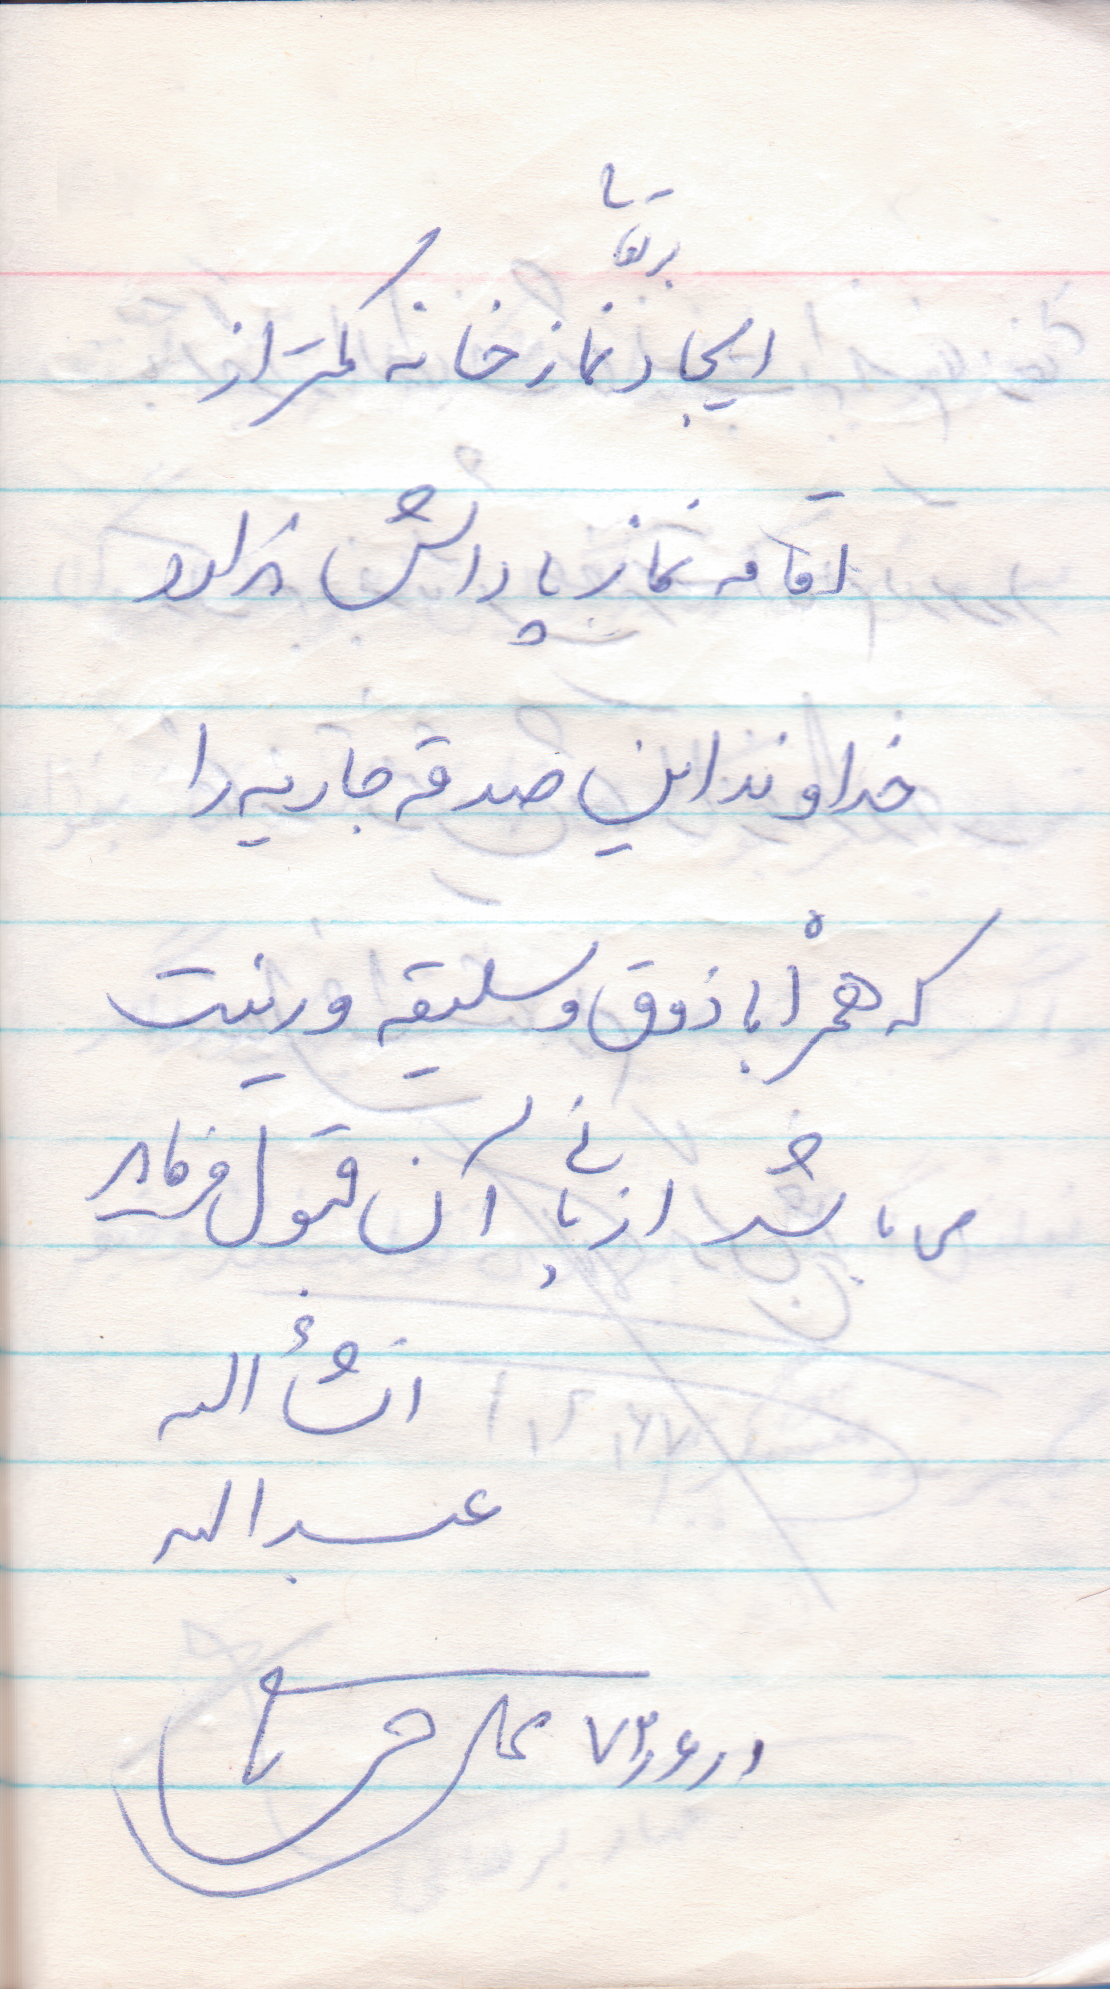 بقا
ایجاد نمازخانه کمتر از
اقامه نماز پاداش ندارد
خداوند این صدقه جاریه را
که همراه با ذوق و سلیقه و زینت
می باشد از بانی آن قبول فرماید
انشاء الله
عبدالله
۷۳